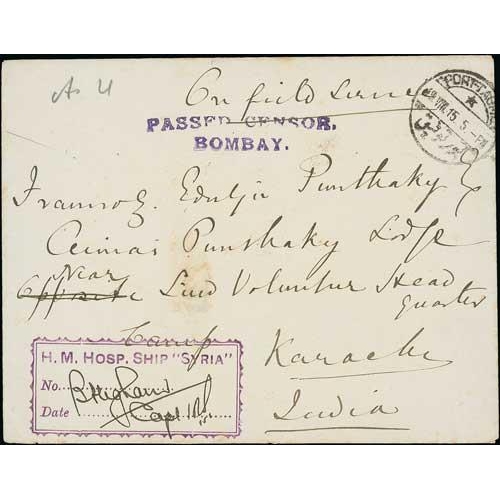 As 4
On field service
PORT TAUFIQ
VIII.15. 5 - PM
PASSED CENSOR.
BOMBAY.
Framroz Edulji Punthakey Esq
Punthakey Lodge
Near
Opposite Sind Volunteer Head
quarter
Camp
Karachi
India
H. M. HOSP. SHIP "SYRIA"
No.
Date Capt